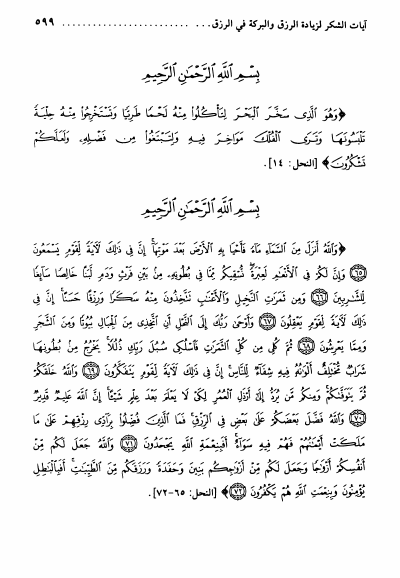 آيات الشكر لزيادة الرزق والبركة في الرزق ................................ ٥٩٩
بِسْمِ اللَّهِ الرَّحْمَٰنِ الرَّحِيمِ
﴿وَهُوَ الَّذِي سَخَّرَ الْبَحْرَ لِتَأْكُلُوا مِنْهُ لَحْمًا طَرِيًّا وَتَسْتَخْرِجُوا مِنْهُ حِلْيَةً
تَلْبَسُونَهَا وَتَرَى الْفُلْكَ مَوَاخِرَ فِيهِ وَلِتَبْتَغُوا مِن فَضْلِهِ وَلَعَلَّكُمْ
تَشْكُرُونَ﴾ [النحل: ١٤].
بِسْمِ اللَّهِ الرَّحْمَٰنِ الرَّحِيمِ
﴿وَاللَّهُ أَنزَلَ مِنَ السَّمَاءِ مَاءً فَأَحْيَا بِهِ الْأَرْضَ بَعْدَ مَوْتِهَا إِنَّ فِي ذَٰلِكَ لَآيَةً لِقَوْمٍ يَسْمَعُونَ
﴿٦٥﴾ وَإِنَّ لَكُمْ فِي الْأَنْعَامِ لَعِبْرَةً نُسْقِيكُم مِمَّا فِي بُطُونِهِ مِن بَيْنِ فَرْثٍ وَدَمٍ لَبَنًا خَالِصًا سَائِغًا
لِلشَّارِبِينَ ﴿٦٦﴾ وَمِن ثَمَرَاتِ النَّخِيلِ وَالْأَعْنَابِ تَتَّخِذُونَ مِنْهُ سَكَرًا وَرِزْقًا حَسَنًا إِنَّ فِي
ذَٰلِكَ لَآيَةً لِقَوْمٍ يَعْقِلُونَ ﴿٦٧﴾ وَأَوْحَىٰ رَبُّكَ إِلَى النَّحْلِ أَنِ اتَّخِذِي مِنَ الْجِبَالِ بُيُوتًا وَمِنَ الشَّجَرِ
وَمِمَّا يَعْرِشُونَ ﴿٦٨﴾ ثُمَّ كُلِي مِن كُلِّ الثَّمَرَاتِ فَاسْلُكِي سُبُلَ رَبِّكِ ذُلُلًا يَخْرُجُ مِن بُطُونِهَا
شَرَابٌ مُخْتَلِفٌ أَلْوَانُهُ فِيهِ شِفَاءٌ لِلنَّاسِ إِنَّ فِي ذَٰلِكَ لَآيَةً لِقَوْمٍ يَتَفَكَّرُونَ ﴿٦٩﴾ وَاللَّهُ خَلَقَكُمْ
ثُمَّ يَتَوَفَّاكُمْ وَمِنكُم مَّن يُرَدُّ إِلَىٰ أَرْذَلِ الْعُمُرِ لِكَيْ لَا يَعْلَمَ بَعْدَ عِلْمٍ شَيْئًا إِنَّ اللَّهَ عَلِيمٌ قَدِيرٌ
﴿٧٠﴾ وَاللَّهُ فَضَّلَ بَعْضَكُمْ عَلَىٰ بَعْضٍ فِي الرِّزْقِ فَمَا الَّذِينَ فُضِّلُوا بِرَادِّي رِزْقِهِمْ عَلَىٰ مَا
مَلَكَتْ أَيْمَانُهُمْ فَهُمْ فِيهِ سَوَاءٌ أَفَبِنِعْمَةِ اللَّهِ يَجْحَدُونَ ﴿٧١﴾ وَاللَّهُ جَعَلَ لَكُم مِنْ
أَنفُسِكُمْ أَزْوَاجًا وَجَعَلَ لَكُم مِنْ أَزْوَاجِكُم بَنِينَ وَحَفَدَةً وَرَزَقَكُم مِنَ الطَّيِّبَاتِ أَفَبِالْبَاطِلِ
يُؤْمِنُونَ وَبِنِعْمَتِ اللَّهِ هُمْ يَكْفُرُونَ ﴿٧٢﴾﴾ [النحل: ٦٥-٧٢].